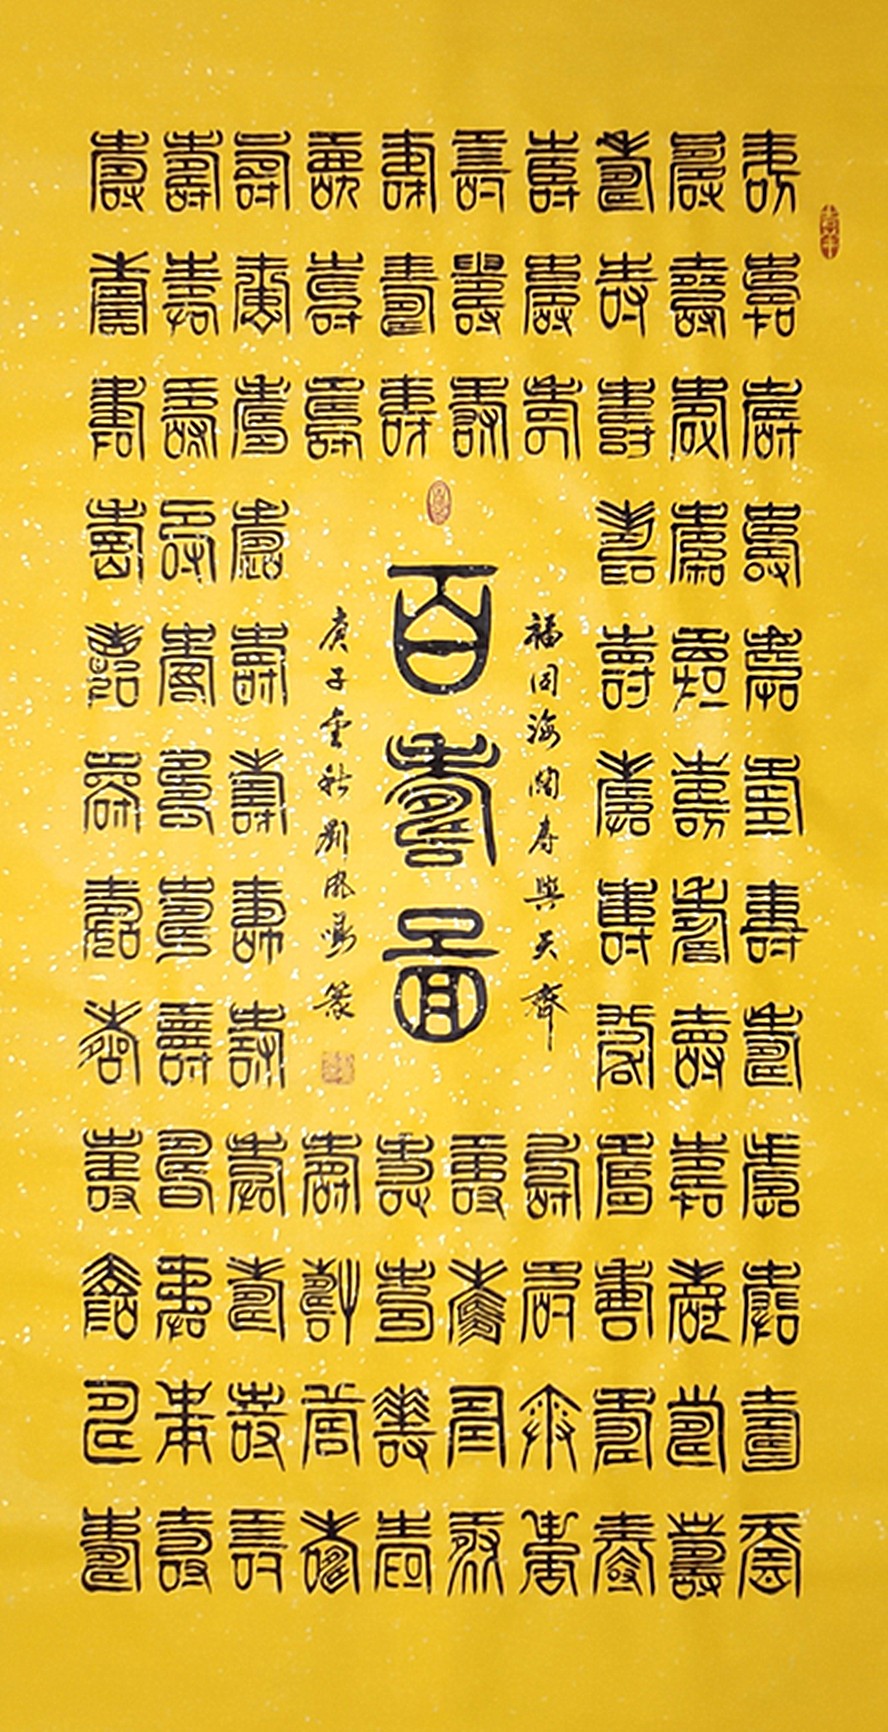 壽壽壽壽壽壽壽壽壽壽壽壽
壽壽壽壽壽壽壽壽壽壽壽壽
壽壽壽壽壽壽壽壽壽壽壽壽
壽壽壽
壽壽壽
壽壽壽
壽壽壽
福同海闊寿與天齊
百壽圖
庚子金秋劉鳳鳴篆
壽壽壽壽
壽壽壽壽
壽壽壽壽
壽壽壽壽
壽壽壽壽壽壽壽壽壽壽壽壽
壽壽壽壽壽壽壽壽壽壽壽壽
壽壽壽壽壽壽壽壽壽壽壽壽